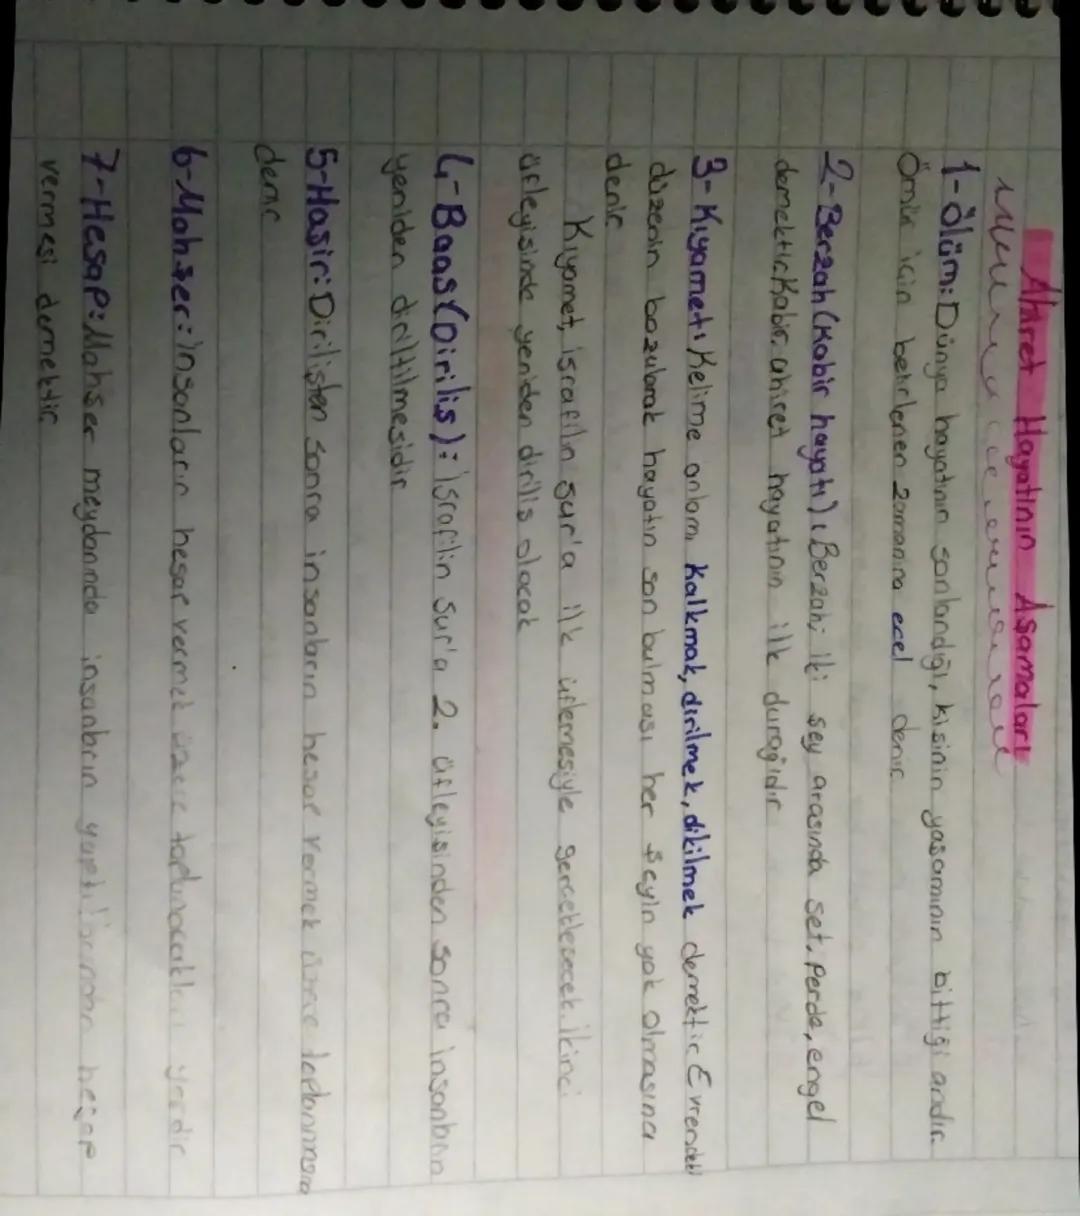 Ahiret Hayatının Aşamaları
1-Ölüm: Dünya hayatının sonlandığı, kişinin yaşamının bittiği andır.
Ömür için belirlenen zamanına ecel denir
2-Berzah (Kabir hayatı): Berzah; iki şey arasında set, perde, engel
demektir. Kabir, ahiret hayatının ilk durağıdır
3-Kıyamet: Kelime anlamı kalkmak, dirilmek, dikilmek demektir Evrendeki
düzenin bozularak hayatın son bulması her şeyin yok olmasına
denir
Kıyamet, İsrafilin sur'a ilk üflemesiyle gerçekleşecek. İkinci
üfleyişinde yeniden diriliş olacak
4-Baas (Diriliş): İsrafilin Sur'a 2. üfleyişinden sonra insanların
yeniden diriltilmesidir
5-Haşir: Dirilişten sonra insanların hesap vermek üzere toplanmasına
denir
6-Mahşer: İnsanların hesap vermek üzere toplanacakları yerdir
7-Hesap: Mahşer meydanında insanların yaptıklarından hesap
vermesi demektir